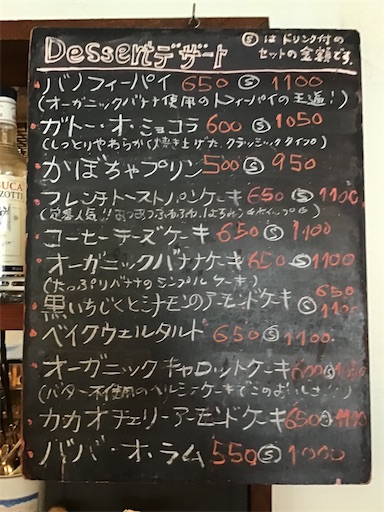 Dessert デザート
Ⓢは ドリンク付の
セットの金額です。
バノフィーパイ 650 Ⓢ 1100
(オーガニックバナナ使用のトフィーパイの王道!)
ガトー・オ・ショコラ 600 Ⓢ 1050
(しっとりやわらかく焼き上げた、クラッシックタイプ)
かぼちゃプリン 500 Ⓢ 950
フレンチトースト パンケーキ 650 Ⓢ 1100
(定番人気!!
コーヒーチーズケーキ 650 Ⓢ 1100
オーガニックバナナケーキ 600 Ⓢ 1100
(たっぷりバナナのシンプルケーキ)
黒いちじくとシナモンのアーモンドケーキ 650 Ⓢ 1100
ベイクウェルタルト 650 Ⓢ 1100
オーガニック キャロットケーキ
(バター不使用のヘルシーケーキでこのおいしさ!!)
カカオチェリーアーモンドケーキ 650 Ⓢ 1100
ババ・オ・ラム 550 Ⓢ 1000